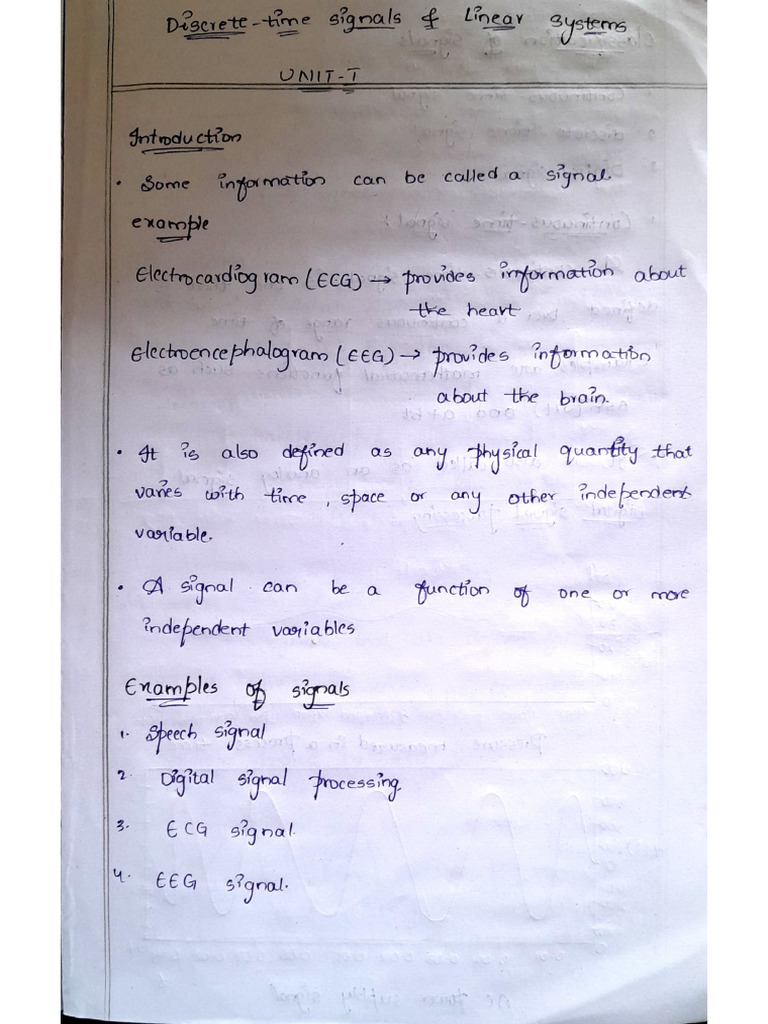 Discrete-time signals & Linear systems
UNIT-I
Introduction
• Some information can be called a signal.
example
Electrocardiogram (ECG) → provides information about
the heart
Electroencephalogram (EEG) → provides information
about the brain.
• It is also defined as any physical quantity that
varies with time, space or any other independent
variable.
• A signal can be a function of one or more
independent variables
Examples of signals
1. Speech signal
2. Digital signal processing.
3. ECG signal.
4. EEG signal.